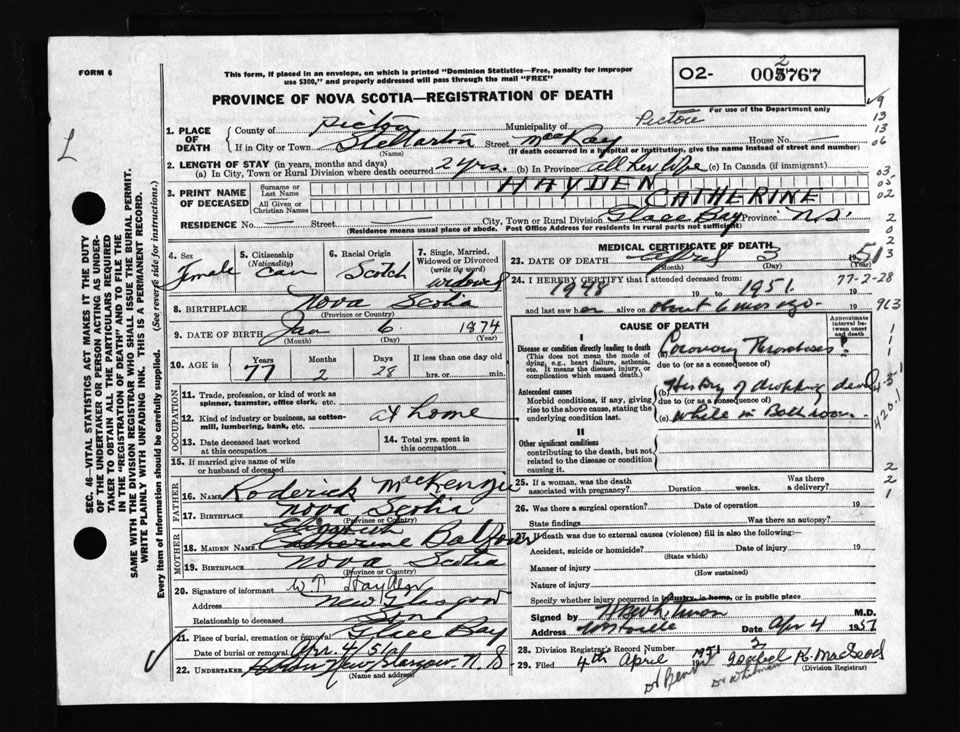 FORM 6
This form, if placed in an envelope, on which is printed "Dominion Statistics—Free, penalty for improper
use $300," and properly addressed will pass through the mail "FREE"
02- 005767
2
PROVINCE OF NOVA SCOTIA—REGISTRATION OF DEATH
For use of the Department only
L
1. PLACE OF DEATH
County of Pictou Municipality of Pictou
If in City or Town Stellarton Street McKay House No. —
(Name) (If death occurred in a hospital or institution, give the name instead of street and number)
2. LENGTH OF STAY (in years, months and days)
(a) In City, Town or Rural Division where death occurred 2 yrs. (b) In Province All her life (c) In Canada (if immigrant)
3. PRINT NAME OF DECEASED
Surname or Last Name HAYDEN
All Given or Christian Names CATHERINE
RESIDENCE No. — Street City, Town or Rural Division Glace Bay Province N.S.
(Residence means usual place of abode. Post Office Address for residents in rural parts not sufficient)
4. Sex Female
5. Citizenship (Nationality) Can
6. Racial Origin Scotch
7. Single, Married, Widowed or Divorced (write the word) widowed
8. BIRTHPLACE Nova Scotia
(Province or Country)
9. DATE OF BIRTH Jan 6 1874
(Month) (Day) (Year)
10. AGE Years 77 Months 2 Days 28 If less than one day old
hrs. or min.
OCCUPATION
11. Trade, profession, or kind of work as spinner, teamster, office clerk, etc.
12. Kind of industry or business, as cotton-mill, lumbering, bank, etc. at home
13. Date deceased last worked at this occupation
14. Total yrs. spent in this occupation
15. If married give name of wife or husband of deceased
FATHER
16. NAME Roderick MacKenzie
17. BIRTHPLACE Nova Scotia
(Province or Country)
MOTHER
Elizabeth
18. MAIDEN NAME Catherine Balfour
19. BIRTHPLACE Nova Scotia
(Province or Country)
20. Signature of informant Hayden
Address New Glasgow
Relationship to deceased Son
21. Place of burial, cremation or removal Glace Bay
Date of burial or removal Apr. 4/51
22. UNDERTAKER New Glasgow, N.S.
(Name and address)
MEDICAL CERTIFICATE OF DEATH
23. DATE OF DEATH April 3 1951
(Month) (Day)
24. I HEREBY CERTIFY that I attended deceased from:
1948 19 to 1951 19
and last saw her alive on about 6 mos ago. 19
77-2-28
CAUSE OF DEATH
Approximate interval between onset and death
I
Disease or condition directly leading to death
(This does not mean the mode of dying, e.g., heart failure, asthenia, etc. It means the disease, injury, or complication which caused death.)
(a) Coronary Thrombosis?
due to (or as a consequence of)
Antecedent causes
Morbid conditions, if any, giving rise to the above cause, stating the underlying condition last.
(b) History of dropping dead
due to (or as a consequence of)
(c) while in Bathroom.
420.1
II
Other significant conditions
contributing to the death, but not related to the disease or condition causing it.
25. If a woman, was the death associated with pregnancy? Duration weeks. Was there a delivery?
26. Was there a surgical operation? Date of operation 19
State findings Was there an autopsy?
27. If death was due to external causes (violence) fill in also the following:—
Accident, suicide or homicide? Date of injury 19
(State which)
Manner of injury
(How sustained)
Nature of injury
Specify whether injury occurred in industry, in home, or in public place
Signed by M.D.
Address Westville Date Apr 4 1951
28. Division Registrar's Record Number 2
29. Filed 4th April 1951 Isabel K. MacLeod
(Division Registrar)
Dr Whitman
SEC. 46—VITAL STATISTICS ACT MAKES IT THE DUTY
OF THE UNDERTAKER OR PERSON ACTING AS UNDER-
TAKER TO OBTAIN ALL THE PARTICULARS REQUIRED
IN THE "REGISTRATION OF DEATH" AND TO FILE THE
SAME WITH THE DIVISION REGISTRAR WHO SHALL ISSUE THE BURIAL PERMIT.
WRITE PLAINLY WITH UNFADING INK. THIS IS A PERMANENT RECORD.
Every item of information should be carefully supplied. (See reverse side for instructions.)
9
13
13
06
03
05
02
2
0
2
3
963
1
1
1
2
2
1